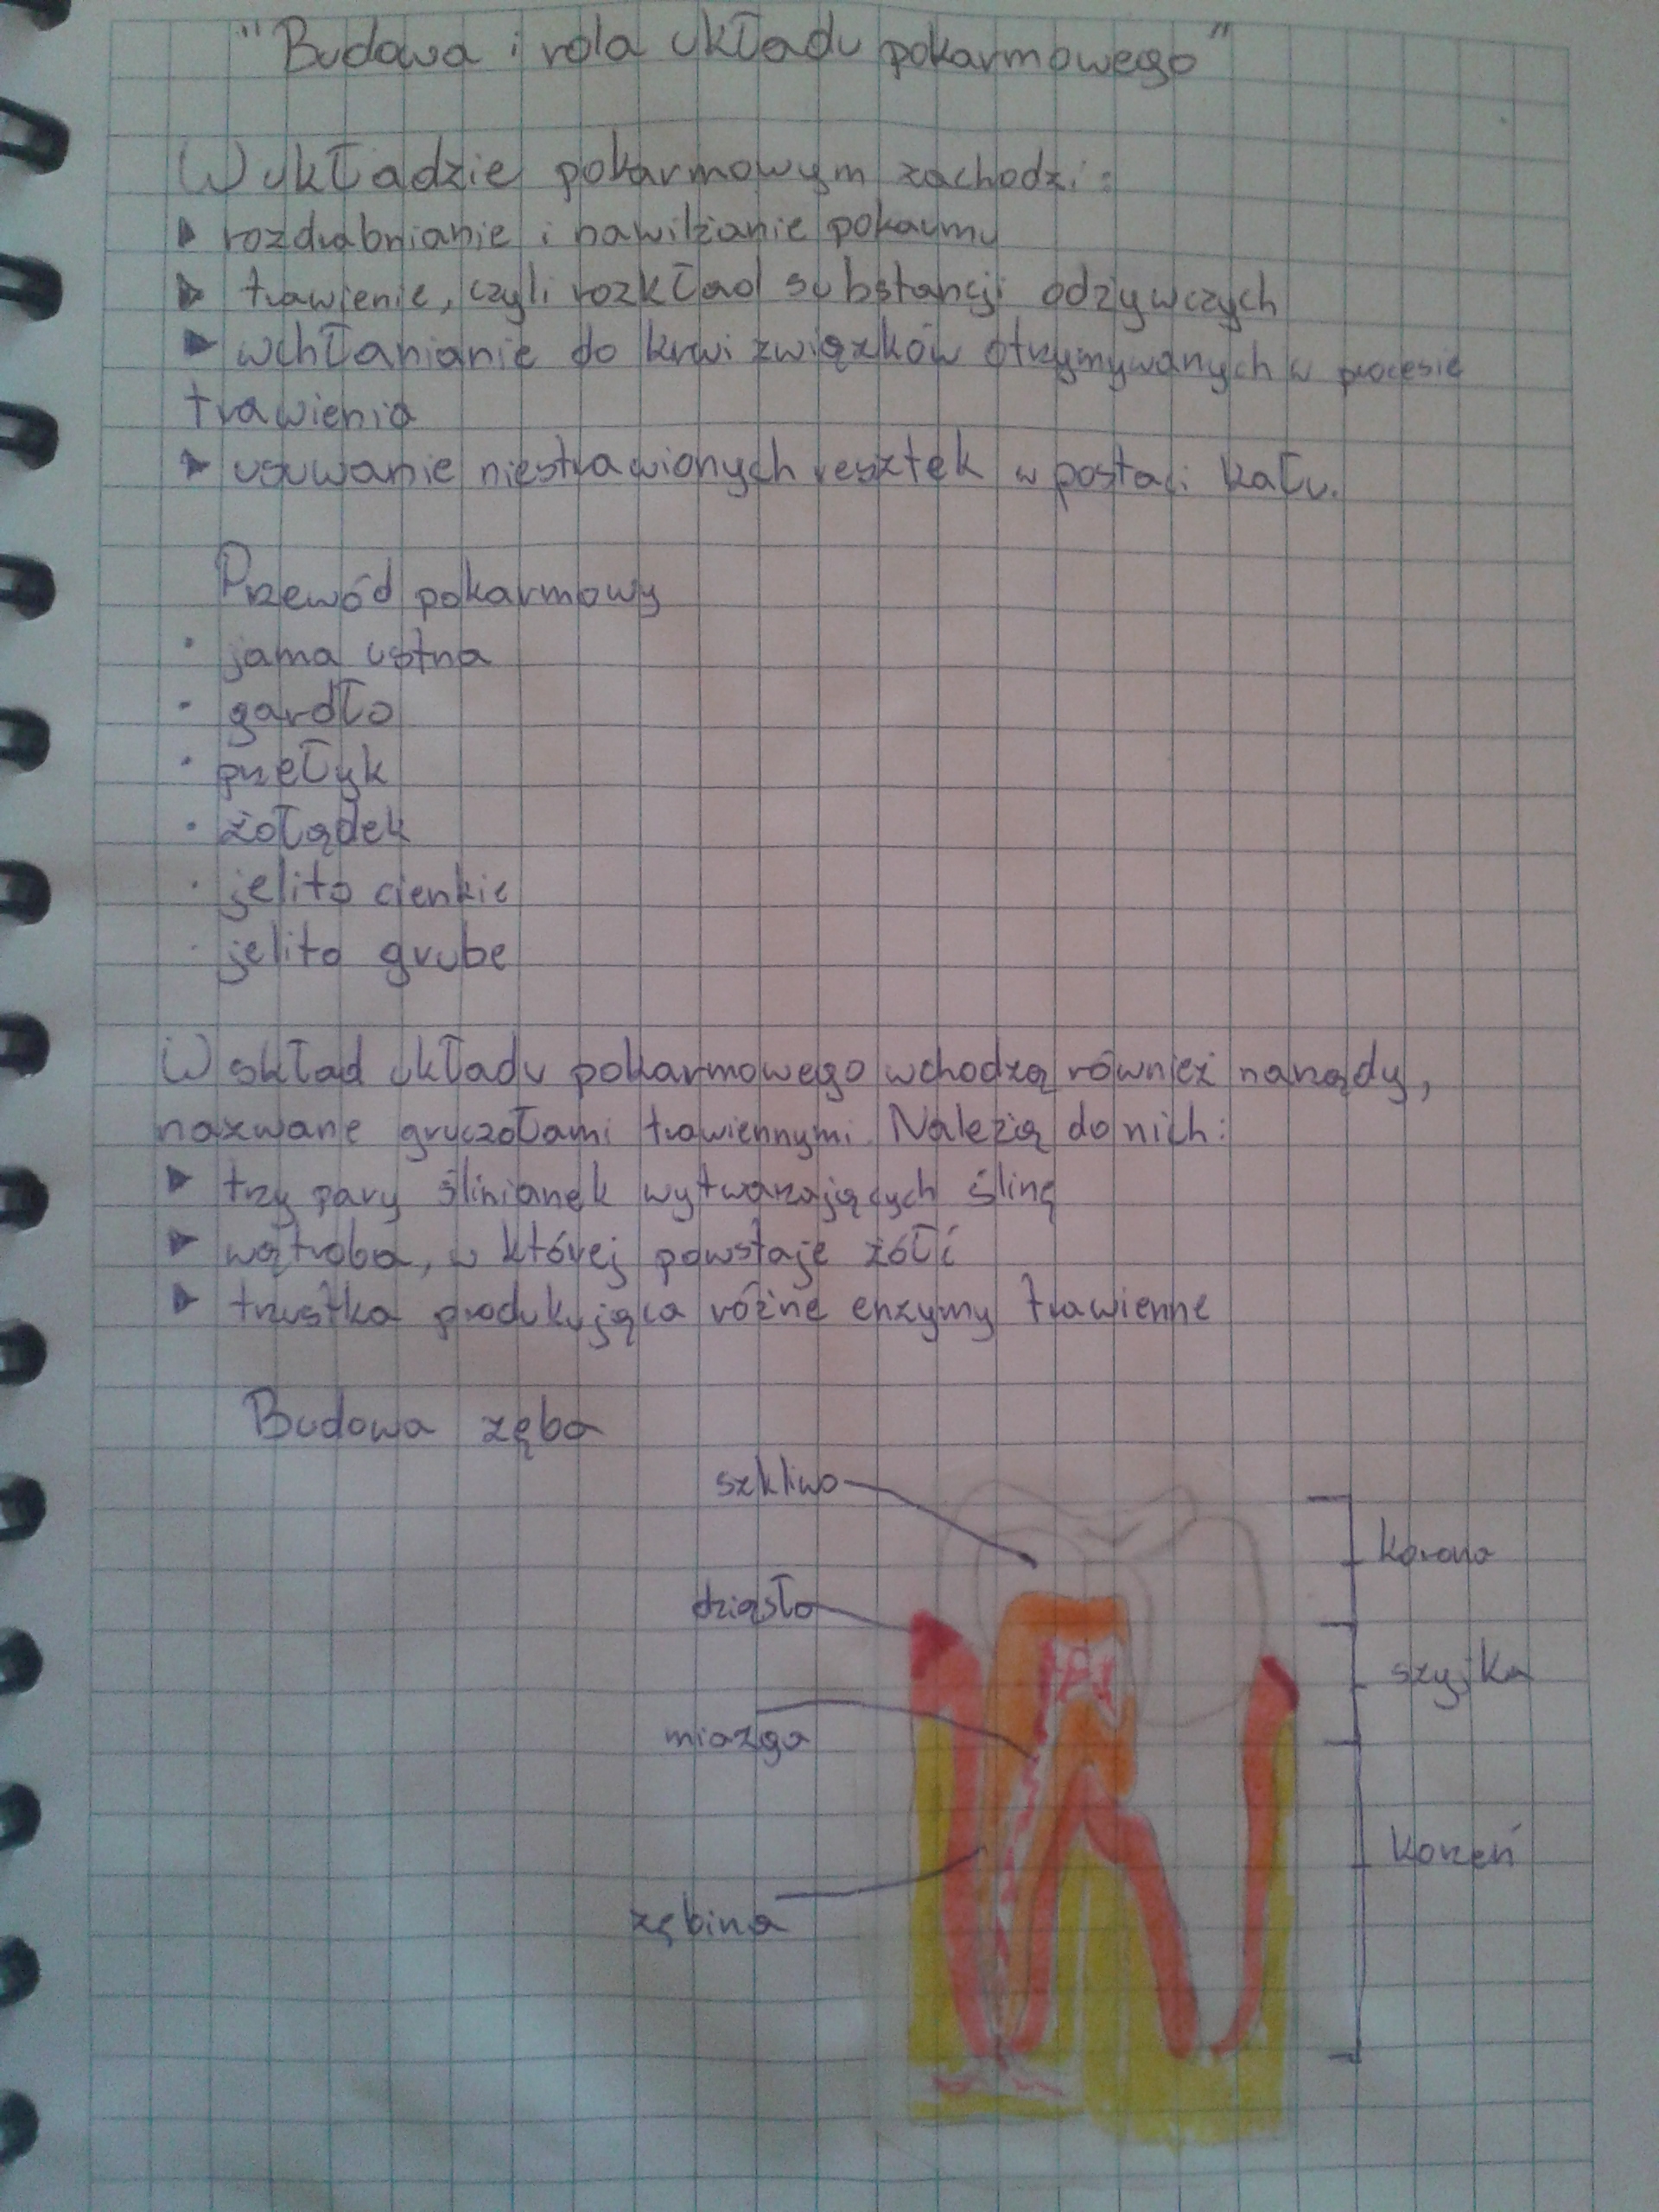 "Budowa i rola układu pokarmowego"
W układzie pokarmowym zachodzi:
▶ rozdrabnianie i nawilżanie pokarmu
▶ trawienie, czyli rozkład substancji odżywczych
▶ wchłanianie do krwi związków otrzymywanych w procesie
trawienia
▶ usuwanie niestrawionych resztek w postaci kału.
Przewód pokarmowy
· jama ustna
· gardło
· przełyk
· żołądek
· jelito cienkie
· jelito grube
W skład układu pokarmowego wchodzą również narządy,
nazwane gruczołami trawiennymi. Należą do nich:
▶ trzy pary ślinianek wytwarzających ślinę
▶ wątroba, w której powstaje żółć
▶ trzustka produkująca różne enzymy trawienne
Budowa zęba
szkliwo
korona
dziąsło
szyjka
miazga
korzeń
zębina